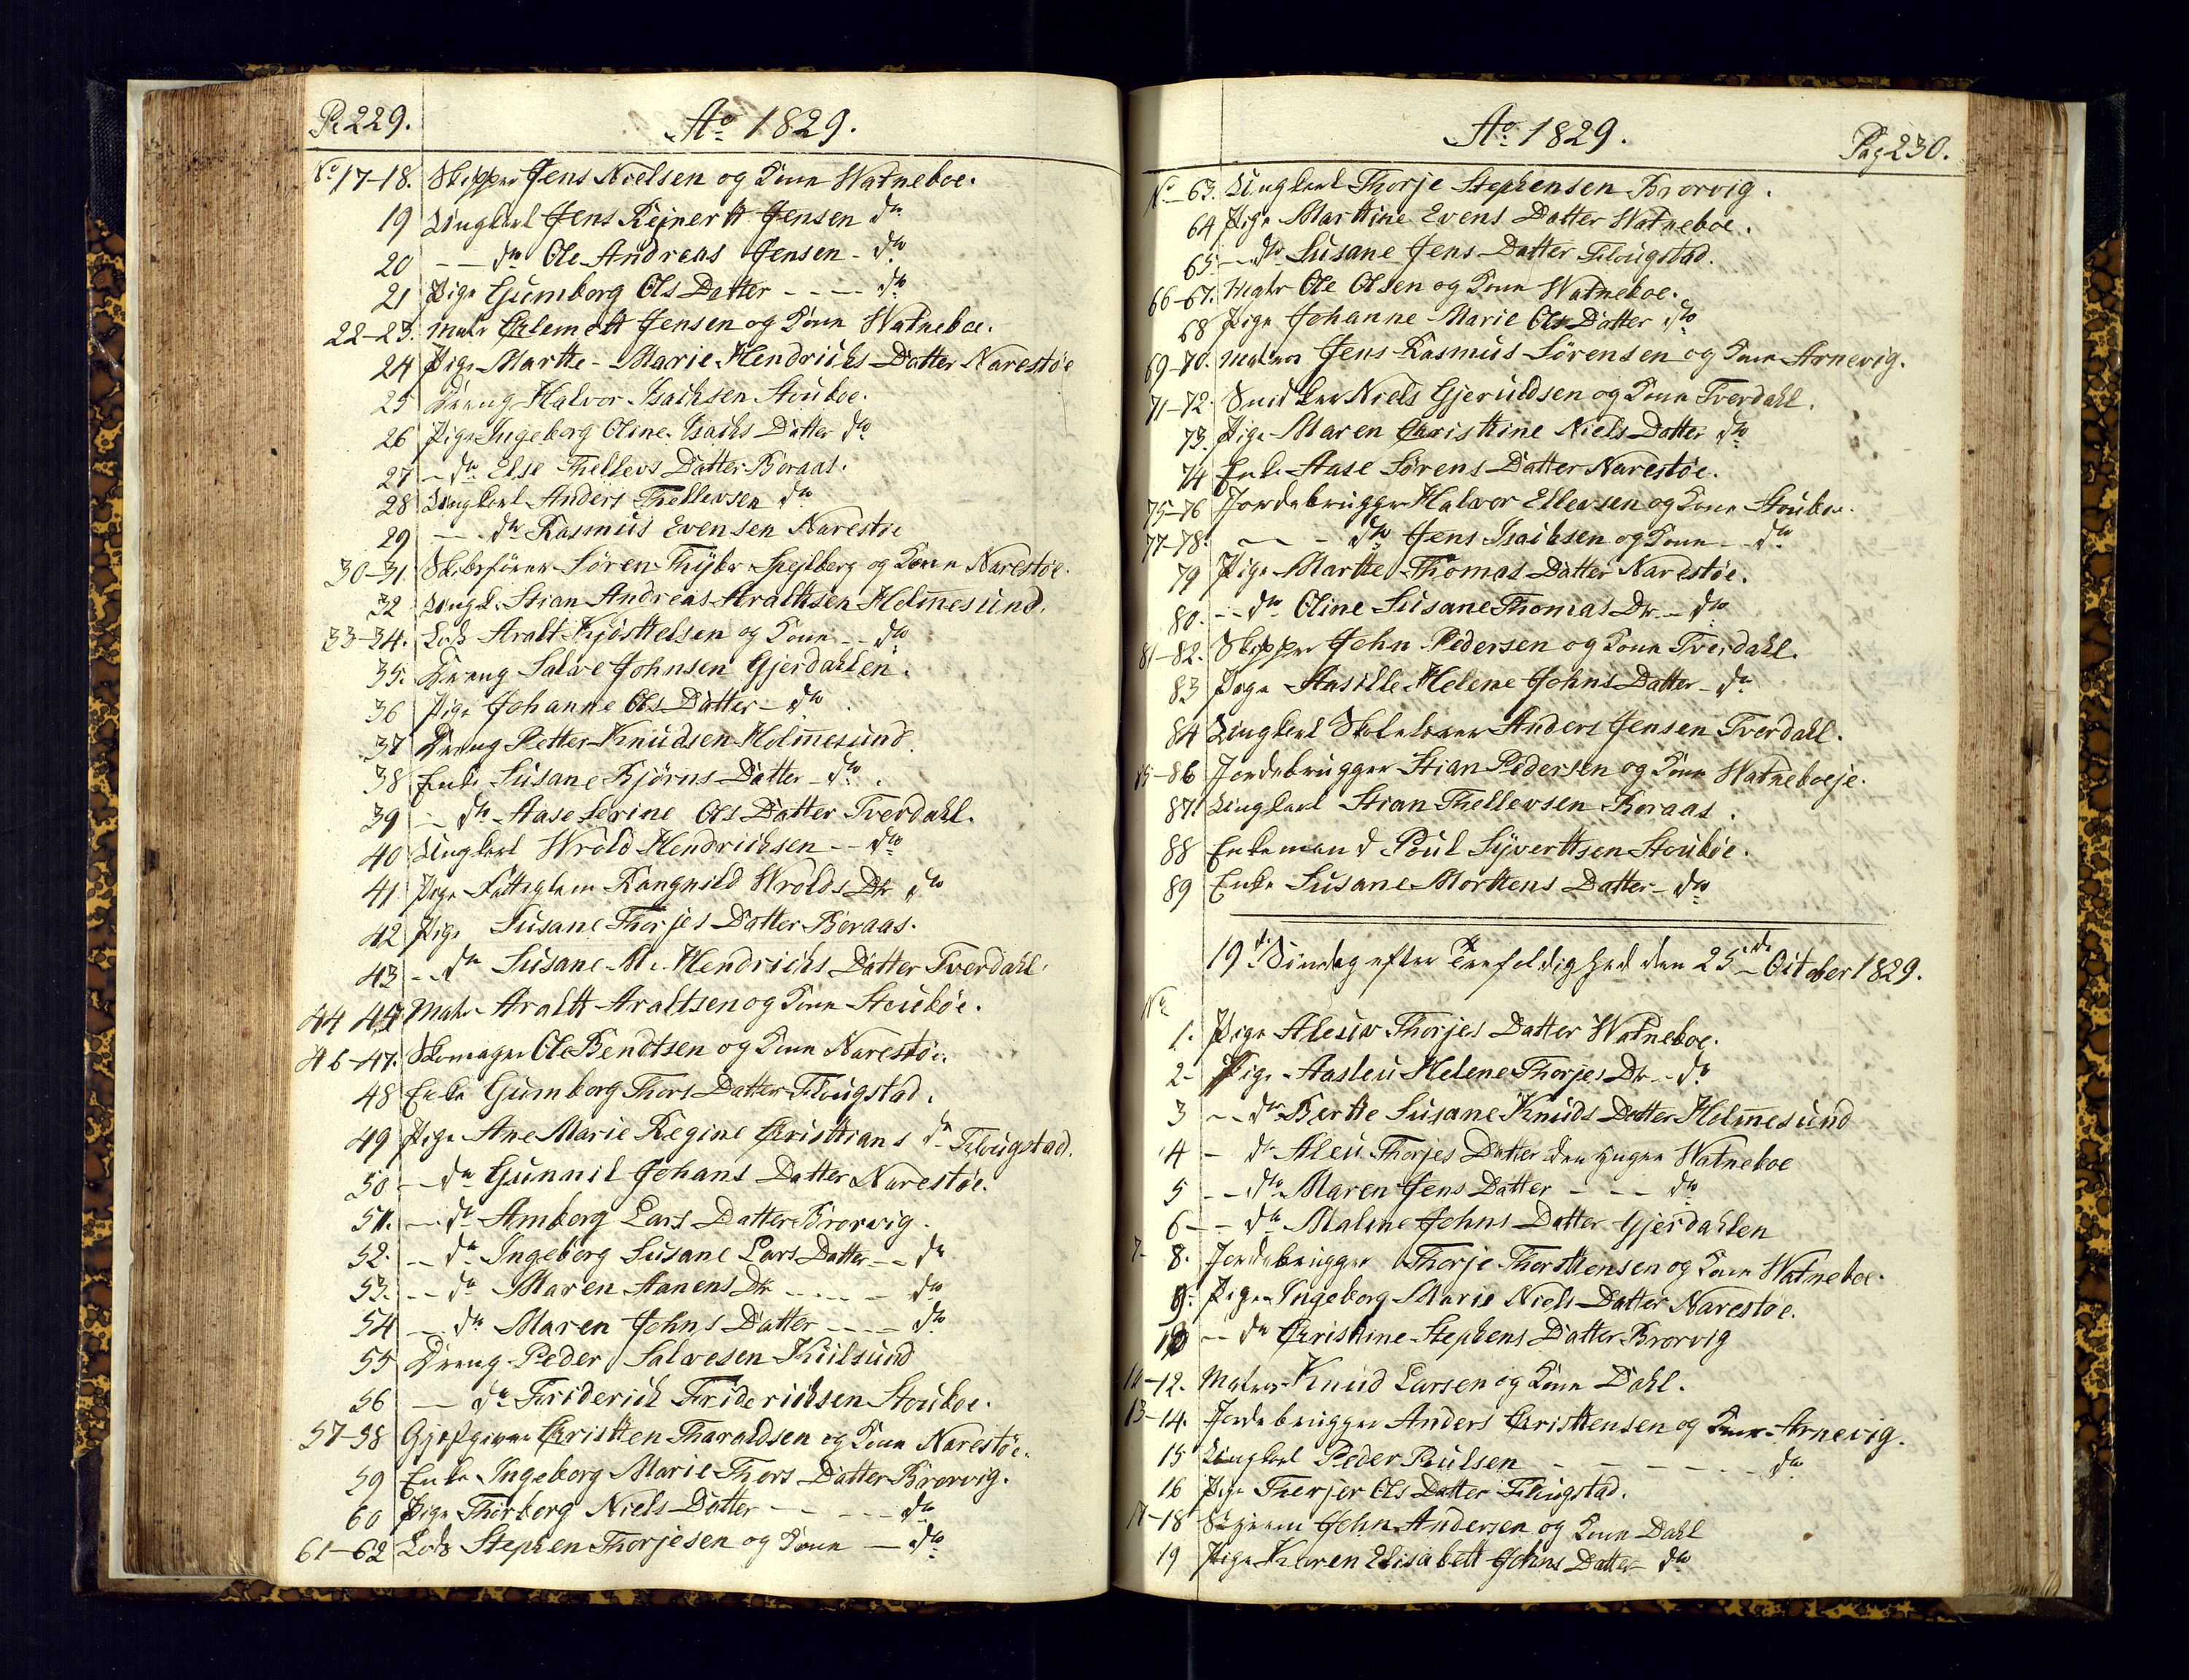 P: 229.
Ao 1829.
No 17-18. Skipper Jens Nielsen og Kone Watneboe.
19 Ungkarl Jens Rejnertt Jensen do
20 -- do Ole Andreas Jensen - do
21 Pige Gumborg Ols Datter ---- do
22-23. Matr Clemett Jensen og Kone Watneboe.
24 Pige Martte-Marie Hendrichs Datter Narestøe
25 Dreng Halvor Isachsen Stouboe.
26 Pige Ingeborg Oline Isachs Datter do
27 - do Else Thellevs Datter Boraas.
28 Ungkarl Anders Thellevsen do
29 --- do Rasmus Evensen Narestøe
30-31. Skibsfører Søren Thybr Spejlberg og Kone Narestøe.
32 Ungk: Stian Andreas Araltksen Holmesund.
33-34. Lods Aralt Kjøsttelsen og Kone -- do
35. Dreng Salve Johnsen Gjerdahlen.
36 Pige Johanne Ols Datter - do.
37 Dreng Petter Knudsen Holmesund.
38 Enke Susane Bjørns Datter - do.
39 - do Aase Serine Ols Datter Tverdahl.
40 Ungkarl Wrold Hendrichsen -- do
41 Pige Fattiglem Rangnild Wrolds Dtr do
42 Pige Susane Thorjes Datter Boraas.
43 -- do Susane M: Hendrichs Datter Tverdahl.
44 45 Matr Araltt Araltsen og Kone Stoubøe.
46-47. Skomager Ole Bendtsen og Kone Narestøe.
48 Enke Gumborg Thors Datter Flougstad.
49 Pige Ane Marie Regine Christtians do Flougstad.
50 -- do Gunnil Johans Datter Narestøe.
51. -- do Amborg Lars Datter Brorvig.
52. -- do Ingeborg Susane Lars Datter -- do
53. -- do Maren Aanens Dtr ---- do
54 -- do Maren Johns Datter ---- do
55 Dreng Peder Salvesen Kiilsund
56 -- do Friderich Friderichsen Stouboe.
57-58 Gjæstgiver Christten Tharaldsen og Kone Narestøe.
59 Enke Ingeborg Marie Thors Datter Brorvig.
60 Pige Thorborg Niels Datter ----- do
61-62 Lods Stephen Thorjesen og Kone - do
Ao 1829.
Pag 230.
No 63. Ungkarl Thorje Stephensen Brorvig.
64 Pige Marttine Evens Datter Watneboe.
65 -- do Susane Jens Datter Flougstad.
66-67. Ole Olsen og Kone Watneboe.
68 Pige Johanne Marie Ols Datter do
69-70. Matros Jens Rasmus Sørensen og Kone Arnevig.
71-72. Snidker Niels Gjeruldsen og Kone Tverdahl.
73. Pige Maren Christtine Niels Datter do
74 Enke Aase Sørens Datter Narestøe.
75-76 Jordebrugger Halvor Ellevsen og Kone Stouboe.
77-78. -- - do Jens Isachsen og Kone -- do
79 Pige Martte Thomas Datter Narestøe.
80. -- do Oline Susane Thomas Dr -- do
81-82. Skipper John Pedersen og Kone Tverdahl.
83 Pige Aasille Helene Johns Datter - do
84 Ungkarl Skolelærer Anders Jensen Tverdahl.
85-86 Jordebrugger Stian Pedersen og Kone Watneboeje.
87. Ungkarl Stian Thellevsen Boraas.
88 Enkemand Poul Syverttsen Stoubøe.
89 Enke Susane Morttens Datter - do
19de Søndag efter Trefoldighed den 25de October 1829.
No
1. Pige Aleuv Thorjes Datter Watneboe.
2- Pige Aasleu Helene Thorjes Dtr -- do
3 -- do Bertte Susane Knuds Datter Holmesund
4 - do Aleu Thorjes Datter den yngre Watneboe
5 -- do Maren Jens Datter - -- do
6 -- do Malene Johns Datter Gjerdahlen
7-8. Jordebrugger Thorje Thorsttensen og Kone Watneboe.
9. Pige Ingeborg Marie Niels Datter Narestøe.
10 -- do Christtine Stephens Datter Brorvig
11-12. Matros Knud Larsen og Kone Dahl.
13-14. Jordebrugger Anders Christtensen og Kone Arnevig.
15 Ungkarl Peder Paulsen ------ do
16 Pige Therjer Ols Datter Flougstad.
17-18 John Andersen og Kone Dahl
19 Pige Karen Elisabett Johns Datter - do